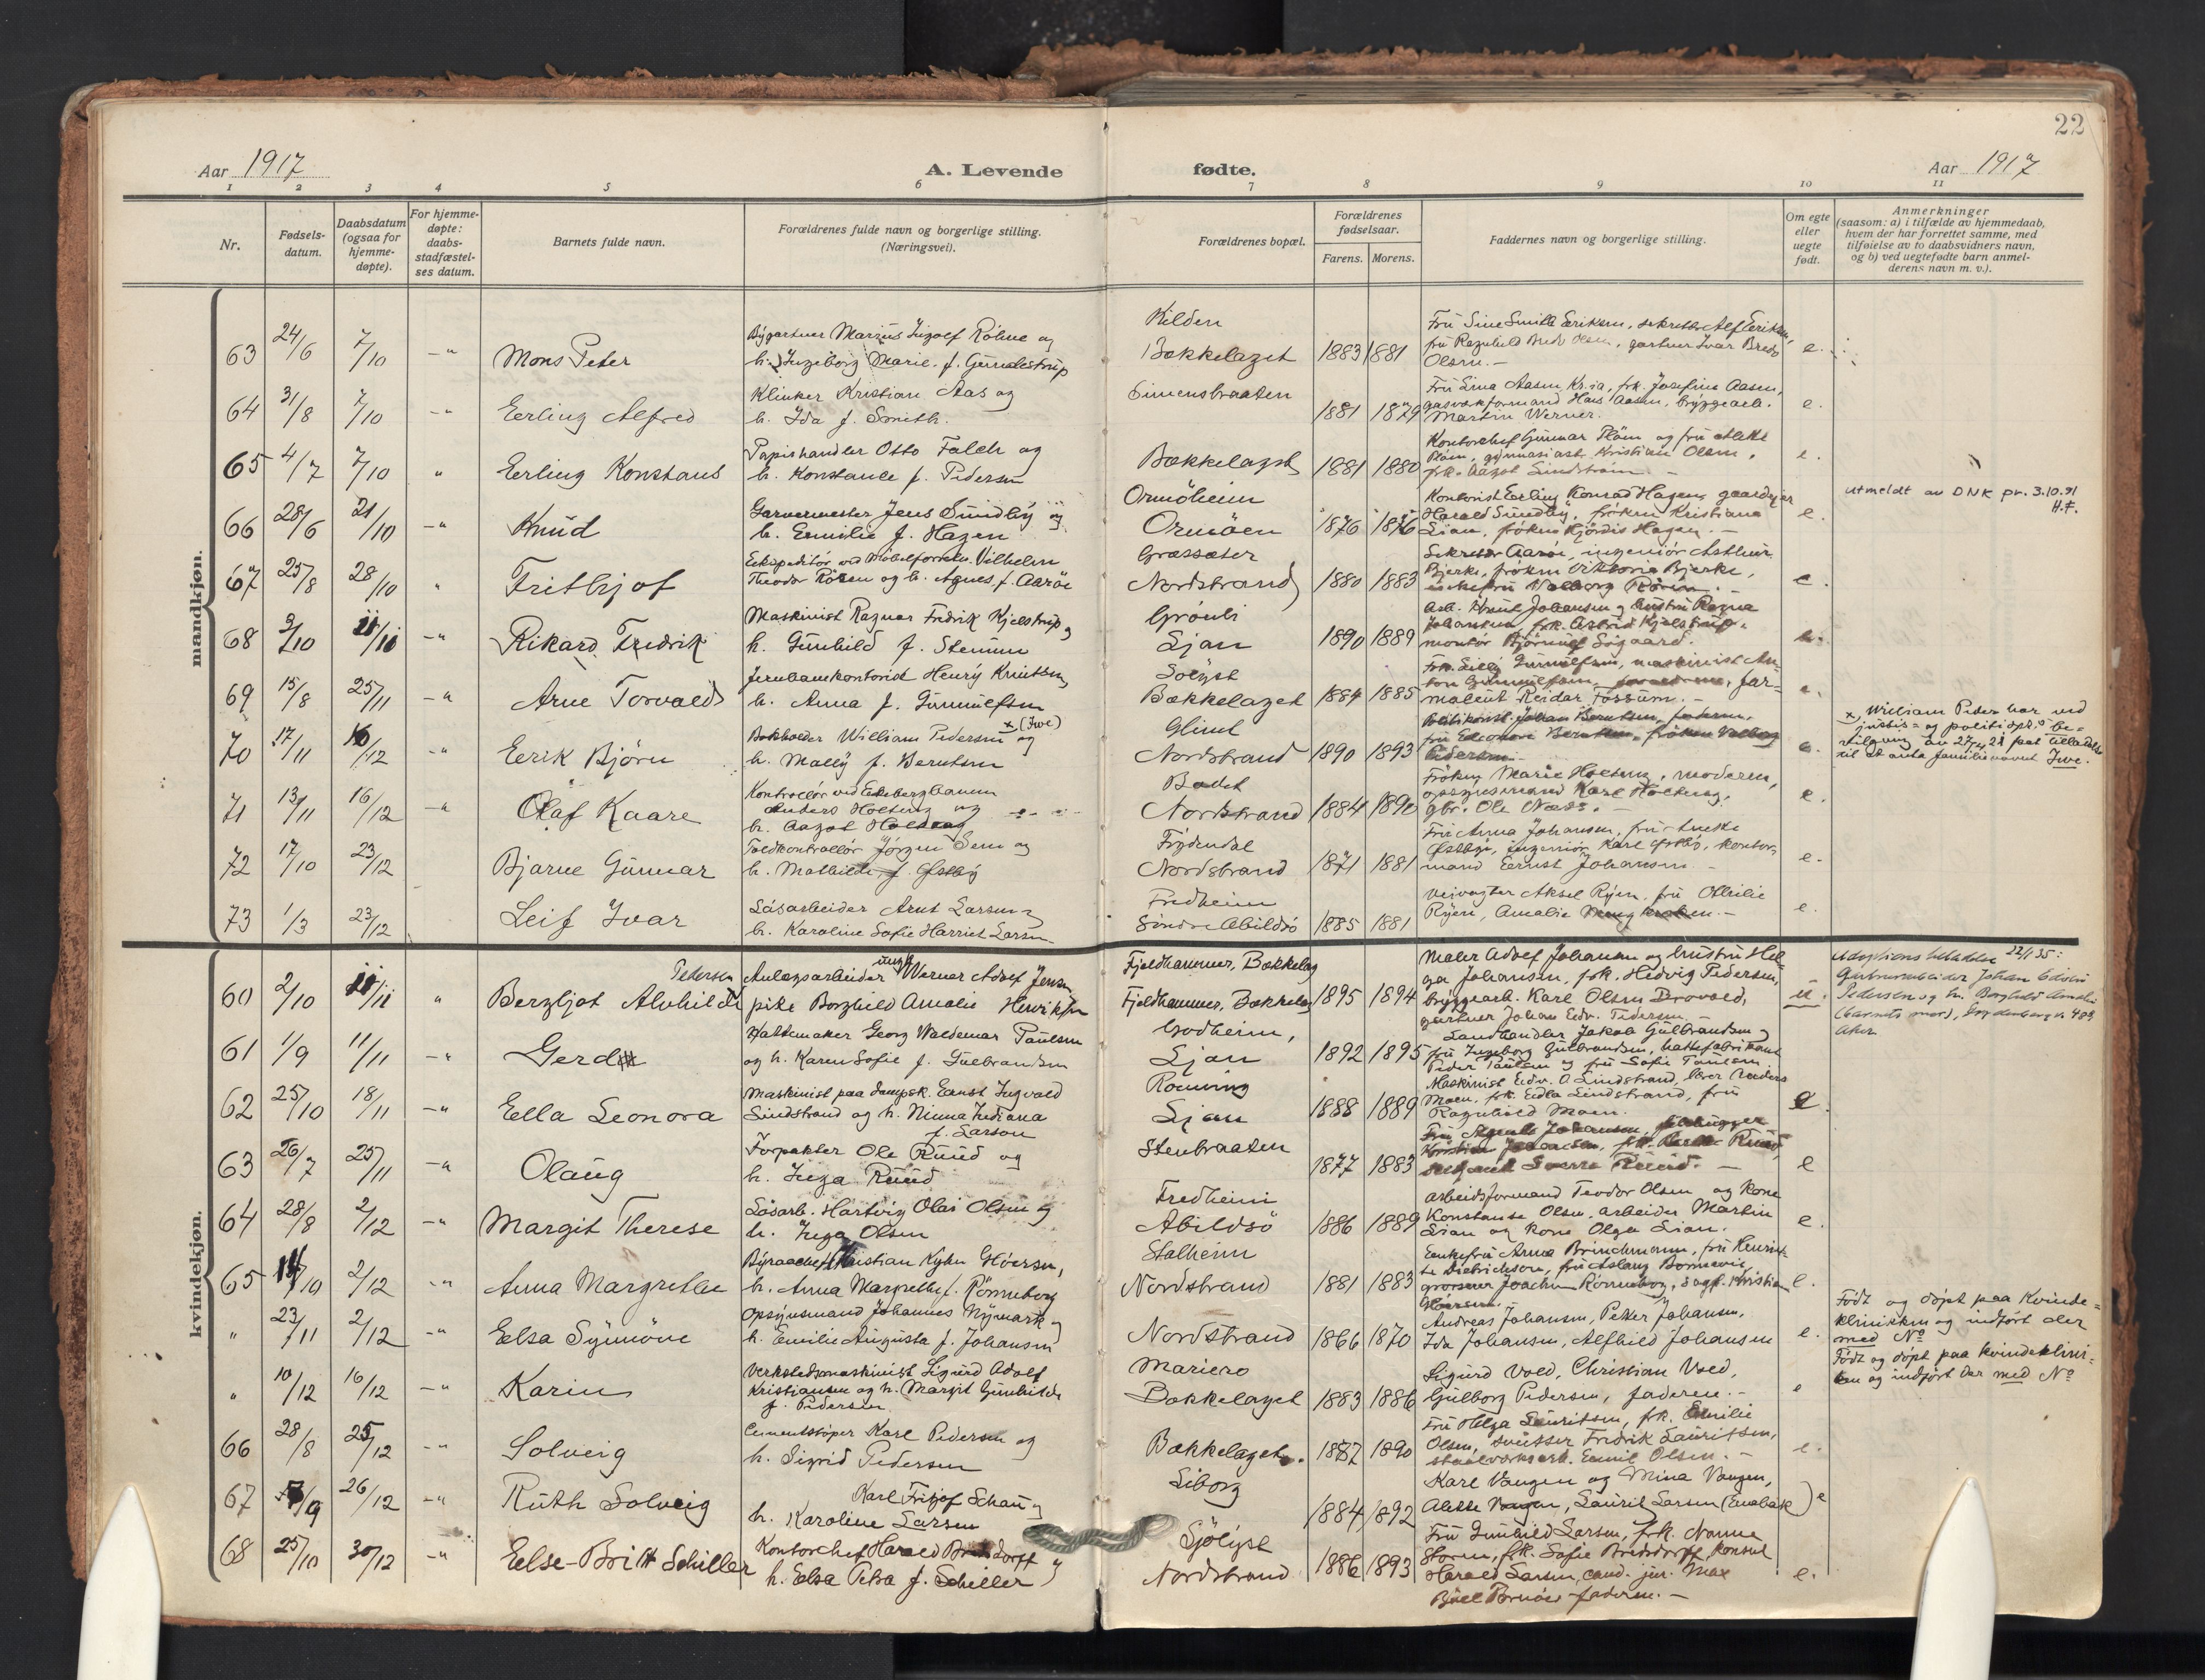 22
Aar 1917
A. Levende
fødte.
Aar 1917
1 2 3 4 5 6 7 8 9 10 11
Nr.
Fødsels-
datum.
Daabsdatum
(ogsaa for
hjemme-
døpte).
For hjemme-
døpte:
daabs-
stadfæstel-
ses datum.
Barnets fulde navn.
Forældrenes fulde navn og borgerlige stilling.
(Næringsvei).
Forældrenes bopæl.
Forældrenes
fødselsaar.
Farens. Morens.
Faddernes navn og borgerlige stilling.
Om egte
eller
uegte
født.
Anmerkninger
(saasom: a) i tilfælde av hjemmedaab,
hvem der har forrettet samme, med
tilføielse av to daabsvidners navn,
og b) ved uegtefødte barn anmel-
derens navn m. v.).
mandkjøn.
63 24/6 7/10 -"- Mons Peter
Bygartner Marius Ingolf Röhne og
h. Ingeborg Marie f.
Kilden
Bækkelaget 1883 1881
Fru Sine Smith Eriksen, sekretær Alf Eriksen,
fru Ragnhild Olsen, gartner Ivar Brede
Olsen.- e.
64 31/8 7/10 -"- Eerling Alfred
Klinker Kristian Aas og
h. Ida f. Smith.
Simensbraaten
1881 1879
Fru Lina Aasen, Kr.ia, frk. Josefine Aasen,
gasverkformand Hans Aasen, bryggearb.
Martin Werner. e.
65 4/7 7/10 " Eerling Konstans
Papirhandler Otto Falch og
h. Konstanse f. Pedersen
Bækkelaget 1881 1880
Kontorchef Gunnar Pløm og fru
Pløm, gymnasiast Kristian Olsen,
frk. Aagot Lindstrøm - e.
66 28/6 21/10 -"- Knud
Garvermester Jens Sundby og
h. Emilie f. Hagen
Ormöheim
Ormöen 1876 1876
Kontorist Eerling Konrad Hagen, gaardejer
Harald Sundby, fröken Kristiane
Lian, fröken Hjördis Hagen - e.
utmeldt av DNK pr. 3.10.91
H.F.
67 25/8 28/10 " Fritbjof
Ekspeditör ved Möbelforretn. Vilhelm
Theodor Rösen og h. Agnes f. Aaröe
Græssæter
Nordstrand 1880 1883
Sekretær Aaröe, ingeniör
Bjerke, fröken Viktoria Bjerke,
enkefru Valborg - e.
68 9/10 11/11 -"- Rikard Fredrik
Maskinist Ragnar Fredrik Kjelstrup og
h. Gunhild f. Stenum
Grönli
Ljan 1890 1889
Arb. Knut Johansen og hustru Ragna
Johansen, frk. Astrid Kjelstrup,
montör Björnulf Sögaard.
69 15/8 25/11 -"- Arne Torvald
Jernbanekontorist Henry Knutsen
h. Anna f. Gunnulfsen
Solyst
Bækkelaget 1884 1885
Frk. Lilly Gunnulfsen, maskinist An-
ton Gunnulfsen, far-
maceut Reidar Fossum. - e.
70 17/11 16/12 -"- Eerik Björn
Bokholder William Pedersen x (Iwe) og
h. Mally f. Berntsen
Glimt
Nordstrand 1890 1893
Politikonst. Johan Berntsen, faderen,
fru Eleonore Berntsen, fröken Valborg
Pedersen. e.
x, William Peder har ved
justis- og politidept.s be-
vilgning av 27/4 21 faat tilladelse
til at anta familienavnet Iwe.
71 13/11 16/12 -"- Olaf Kaare
Kontrollör ved Ekebergbanen
Anders Holteng og
h. Aagot Holteng
Badet
Nordstrand 1884 1890
Fröken Marie Holteng, moderen,
opsynsmand Karl Holteng,
gbr. Ole Næss. - e.
72 17/10 23/12 Bjarne Gunnar
Toldkontrollör Jörgen Sem og
h. Mathilde f. Östby
Frydendal
Nordstrand 1871 1881
Fru Anna Johansen, fru
Östby, ingeniör Karl Östby, kontor-
mand Eernst Johansen - e.
73 1/3 23/12 Leif Ivar
Løsarbeider Arnt Larsen og
h. Karoline Sofie Harriet Larsen
Fredheim
Söndre Abildsö 1885 1881
Veivogter Aksel Ryen, fru Otthilie
Ryen, Amalie - e.
kvindekjøn.
60 2/10 11/11 " Bergljot Alvhild Pedersen
Anlægsarbeider ungk. Werner Adolf Jensen,
pike Borghild Amalie Henriksen
Fjeldhammer, Bækkelag
Fjeldhammer, Bækkelag 1895 1894
Maler Adolf Johansen og hustru Hel-
ga Johansen, frk. Hedvig Pedersen,
bryggearb. Karl Olsen Brovold,
gartner Johan Edv. Pedersen. - u.
Adoptionsbevilling 22/1 35:
Gutramarbeider Johan Edvin
Pedersen og h. Borghild Amalie
(barnets mor),
Aker
61 1/9 11/11 -"- Gerd
Hattemaker Georg Waldemar Paulsen
og h. Karen Sofie f. Gulbrandsen
Godheim,
Ljan 1892 1895
Landhandler Jakob Gulbrandsen og
fru Ingeborg Gulbrandsen, hattefabrikant
Peder Paulsen og fru Sofie Paulsen
62 25/10 18/11 -"- Eella Leonora
Maskinist paa dampsk. Eernst Ingvald
Lindstrand og h. Ninna Indiana
f. Larson
Ljan 1888 1889
Maskinist Edv. A Lindstrand, Reidars
Moen, frk. Eedla Lindstrand, fru
Ragnhild Moen. e.
63 26/7 25/11 -"- Olaug
Forpakter Ole Ruud og
h. Inga Ruud
Stenbraaten
1877 1883
Fru Johansen,
Sverre Ruud. - e
64 28/8 2/12 -"- Margit Therese
Løsarb. Hartvig Olai Olsen og
h. Inga Olsen
Fredheim
Abildsö 1886 1889
Arbeidsformand Teodor Olsen og kone
Konstanse Olsen, arbeider Martin
Lian og kone Olga Lian. e.
65 14/10 2/12 -"- Anna Margrethe
Byraachef Kristian Kyhn Höersen,
h. Anna Margrethe f. Rönneborg
Stalheim
Nordstrand 1881 1883
Enkefru Anna Brinchmann, fru Henriet-
te Diedrichson, fru Aslaug Bonnevie,
grosserer Joachim Rönneborg, Kristian
e.
" 23/11 2/12 -"- Eelsa Synnöve
Opsynsmand Johannes Nymark og
h. Emilie Augusta f. Johansen
Nordstrand 1866 1870
Andreas Johansen, Petter Johansen,
Ida Johansen, Alfhild Johansen e.
Födt og döpt paa Kvinde-
klinikken og indfört der
med No
" 10/12 16/12 -"- Karin
Verkstedsmaskinist Sigurd Adolf
Kristiansen og h. Margit Gunhilde
f. Pedersen
Mariero
Bækkelaget 1883 1886
Sigurd Vold, Christian Vold,
Gulborg Pedersen, faderen. - e
Födt og döpt paa kvindeklini-
ken og indfört der med No
66 28/8 25/12 -"- Solveig
Cementstöper Karl Pedersen og
h. Sigrid Pedersen
Bækkelaget. 1887 1890
Fru Helga Lauritsen, frk. Emilie
Olsen, Fredrik Lauritsen,
staalverksarb. Eemil Olsen. - e.
67 /9 26/12 -"- Ruth Solveig
Karl Fritjof Schau og
h. Karoline Larsen
Liborg
1884 1892
Karl Vangen og Mina Vangen,
Alette Vangen, Laurit Larsen (Enebak) e
68 25/10 30/12 -"- Eelse-Britt Schiller
Kontorchef Harald Bredsdorff og
h. Eelsa Petra f. Schiller
Sjölyst
Nordstrand 1886 1893
Fru Gunhild Larsen, frk. Nanna
Storm, frk. Sofie Bredsdorff, konsul
Harald Larsen, cand. jur. Max
faderen. - e.